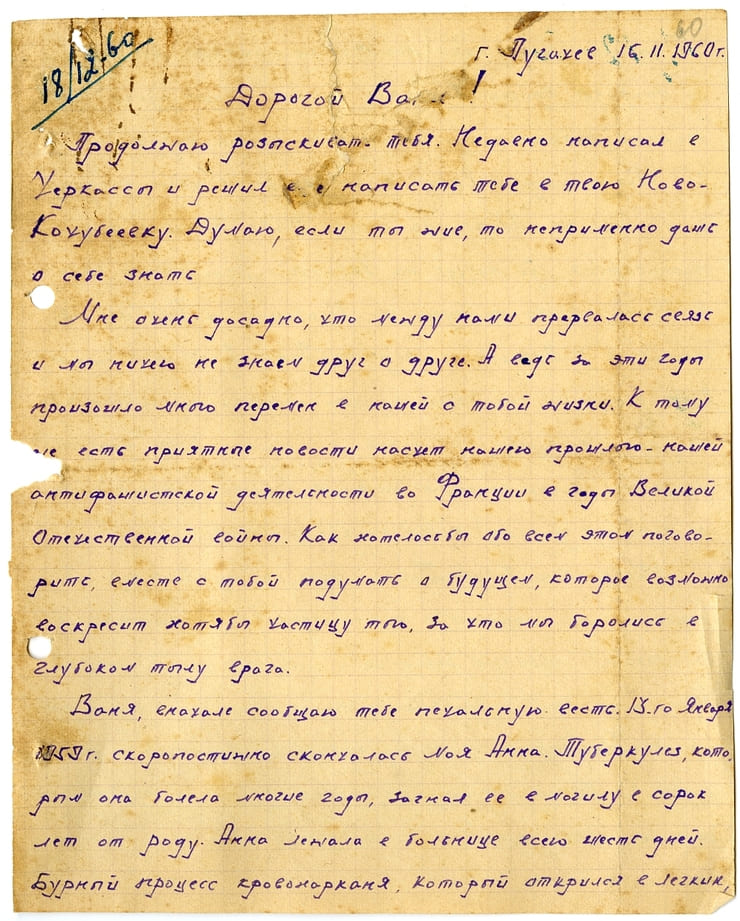 60
18/12-60
г. Пугачев 16.11.1960г.
Дорогой Ваня!
Продолжаю розыскивать тебя. Недавно написал в
Черкассы и решил написать тебе в твою Ново-
Кочубеевку. Думаю, если ты жив, то неприменно дашь
о себе знать
Мне очень досадно, что между нами прервалась связь
и мы ничего не знаем друг о друге. А ведь за эти годы
произошло много перемен в нашей с тобой жизни. К тому
же есть приятные новости насчет нашего прошлого - нашей
антифашистской деятельности во Франции в годы Великой
Отечественной войны. Как хотелосьбы обо всем этом погово-
рить, вместе с тобой подумать о будущем, которое возможно
воскресит хотябы частицу того, за что мы боролись в
глубоком тылу врага.
Ваня, вначале сообщаю тебе печальную весть. 13-го Января
1959 г. скоропостижно скончалась моя Анна. Туберкулез, кото-
рым она болела многие годы, загнал ее в могилу в сорок
лет от роду. Анна лежала в больнице всего шесть дней.
Бурный процесс кровохаркания, который открылся в легких,